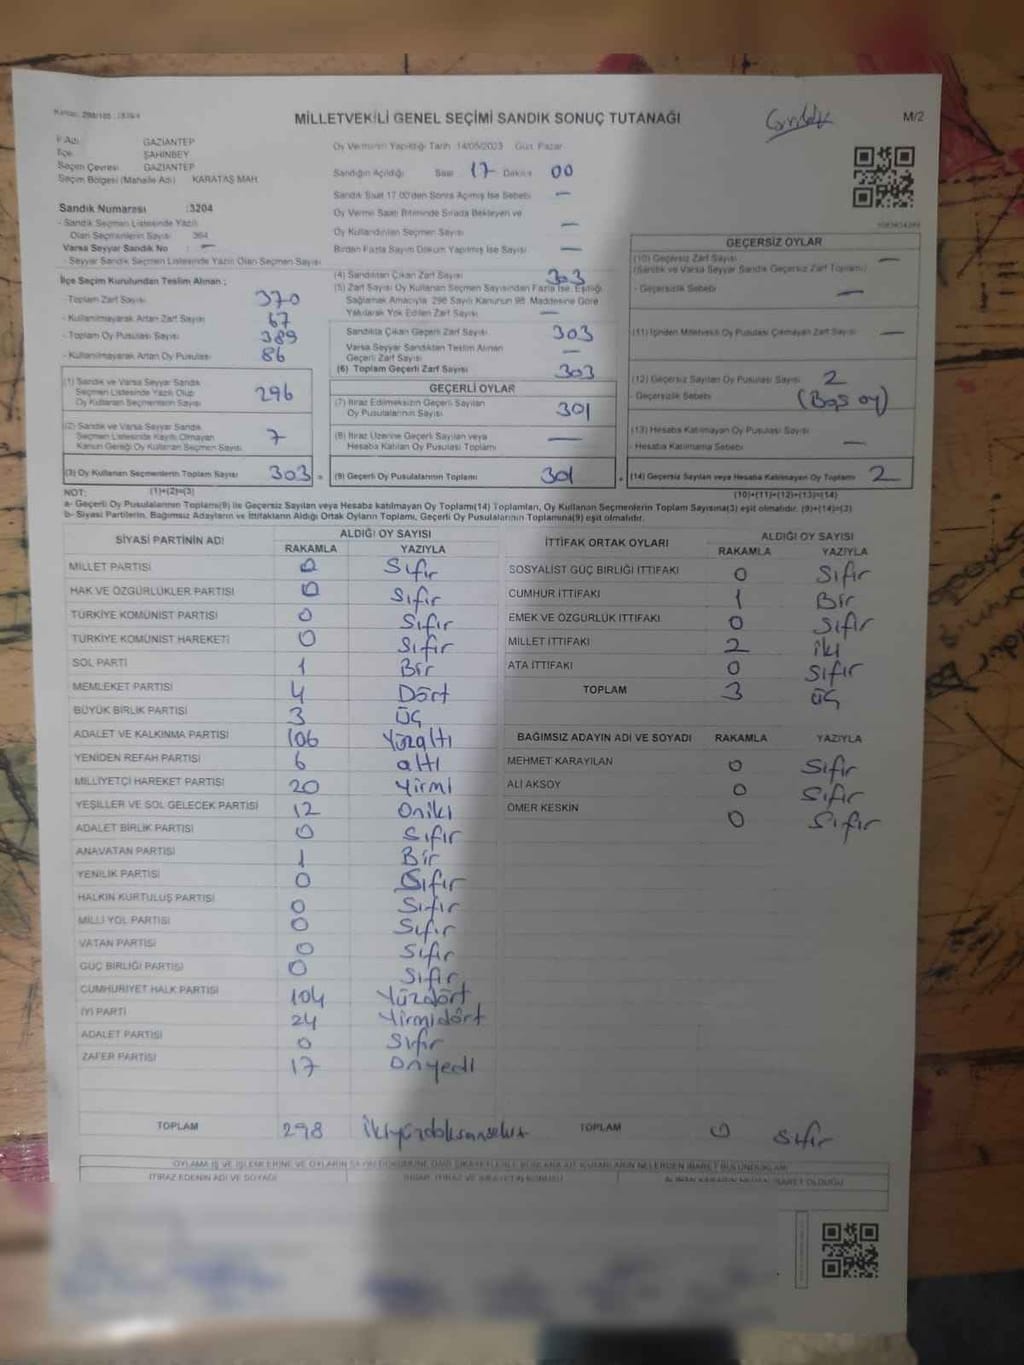 MİLLETVEKİLİ GENEL SEÇİMİ SANDIK SONUÇ TUTANAĞI
M/2
İl Adı: GAZİANTEP
İlçe: ŞAHİNBEY
Seçim Çevresi: GAZİANTEP
Seçim Bölgesi (Mahalle Adı) KARATAŞ MAH.
Oy Vermenin Yapıldığı Tarih: 14/05/2023 Gün: Pazar
Sandığın Açıldığı Saat 17 Dakika 00
Sandık Saat 17.00'den Sonra Açılmış İse Sebebi —
Oy Verme Saati Bitiminde Sırada Bekleyen ve
Oy Kullandırılan Seçmen Sayısı —
Birden Fazla Sayım Döküm Yapılmış İse Sayısı —
Sandık Numarası :3204
- Sandık Seçmen Listesinde Yazılı
Olan Seçmenlerin Sayısı 364
Varsa Seyyar Sandık No : —
- Seyyar Sandık Seçmen Listesinde Yazılı Olan Seçmen Sayısı
İlçe Seçim Kurulundan Teslim Alınan :
- Toplam Zarf Sayısı 370
- Kullanılmayarak Artan Zarf Sayısı 67
- Toplam Oy Pusulası Sayısı 389
- Kullanılmayarak Artan Oy Pusulası 86
(1) Sandık ve Varsa Seyyar Sandık
Seçmen Listesinde Yazılı Olup
Oy Kullanan Seçmenlerin Sayısı 296
(2) Sandık ve Varsa Seyyar Sandık
Seçmen Listesinde Kayıtlı Olmayan
Kanun Gereği Oy Kullanan Seçmen Sayısı 7
(3) Oy Kullanan Seçmenlerin Toplam Sayısı 303
(1)+(2)=(3)
(4) Sandıktan Çıkan Zarf Sayısı 303
(5) Zarf Sayısı Oy Kullanan Seçmen Sayısından Fazla İse, Eşitliği
Sağlamak Amacıyla 298 Sayılı Kanunun 98. Maddesine Göre
Yakılarak Yok Edilen Zarf Sayısı —
Sandıkta Çıkan Geçerli Zarf Sayısı 303
Varsa Seyyar Sandıktan Teslim Alınan
Geçerli Zarf Sayısı —
(6) Toplam Geçerli Zarf Sayısı 303
GEÇERLİ OYLAR
(7) İtiraz Edilmeksizin Geçerli Sayılan
Oy Pusulalarının Sayısı 301
(8) İtiraz Üzerine Geçerli Sayılan veya
Hesaba Katılan Oy Pusulası Toplamı —
(9) Geçerli Oy Pusulalarının Toplamı 301
GEÇERSİZ OYLAR
(10) Geçersiz Zarf Sayısı —
(Sandık ve Varsa Seyyar Sandık Geçersiz Zarf Toplamı)
- Geçersizlik Sebebi —
(11) İçinden Milletvekili Oy Pusulası Çıkmayan Zarf Sayısı —
(12) Geçersiz Sayılan Oy Pusulası Sayısı 2
- Geçersizlik Sebebi (Boş oy)
(13) Hesaba Katılmayan Oy Pusulası Sayısı
- Hesaba Katılmama Sebebi —
(14) Geçersiz Sayılan veya Hesaba Katılmayan Oy Toplamı 2
(10)+(11)+(12)+(13)=(14)
NOT:
a- Geçerli Oy Pusulalarının Toplamı(9) ile Geçersiz Sayılan veya Hesaba katılmayan Oy Toplamı(14) Toplamları, Oy Kullanan Seçmenlerin Toplam Sayısına(3) eşit olmalıdır. (9)+(14)=(3)
b- Siyasi Partilerin, Bağımsız Adayların ve İttifakların Aldığı Oyların Toplamı, Geçerli Oy Pusulalarının Toplamına(9) eşit olmalıdır.
SİYASİ PARTİNİN ADI ALDIĞI OY SAYISI
RAKAMLA YAZIYLA
MİLLET PARTİSİ 0 Sıfır
HAK VE ÖZGÜRLÜKLER PARTİSİ 0 Sıfır
TÜRKİYE KOMÜNİST PARTİSİ 0 Sıfır
TÜRKİYE KOMÜNİST HAREKETİ 0 Sıfır
SOL PARTİ 1 Bir
MEMLEKET PARTİSİ 4 Dört
BÜYÜK BİRLİK PARTİSİ 3 üç
ADALET VE KALKINMA PARTİSİ 106 Yüzaltı
YENİDEN REFAH PARTİSİ 6 altı
MİLLİYETÇİ HAREKET PARTİSİ 20 Yirmi
YEŞİLLER VE SOL GELECEK PARTİSİ 12 Oniki
ADALET BİRLİK PARTİSİ 0 Sıfır
ANAVATAN PARTİSİ 1 Bir
YENİLİK PARTİSİ 0 Sıfır
HALKIN KURTULUŞ PARTİSİ 0 Sıfır
MİLLİ YOL PARTİSİ 0 Sıfır
VATAN PARTİSİ 0 Sıfır
GÜÇ BİRLİĞİ PARTİSİ 0 Sıfır
CUMHURİYET HALK PARTİSİ 104 Yüzdört
İYİ PARTİ 24 Yirmidört
ADALET PARTİSİ 0 Sıfır
ZAFER PARTİSİ 17 Onyedi
TOPLAM 298 İkiyüzdoksansekiz
İTTİFAK ORTAK OYLARI ALDIĞI OY SAYISI
RAKAMLA YAZIYLA
SOSYALİST GÜÇ BİRLİĞİ İTTİFAKI 0 Sıfır
CUMHUR İTTİFAKI 1 Bir
EMEK VE ÖZGÜRLÜK İTTİFAKI 0 Sıfır
MİLLET İTTİFAKI 2 iki
ATA İTTİFAKI 0 Sıfır
TOPLAM 3 üç
BAĞIMSIZ ADAYIN ADI VE SOYADI RAKAMLA YAZIYLA
MEHMET KARAYILAN 0 Sıfır
ALİ AKSOY 0 Sıfır
ÖMER KESKİN 0 Sıfır
TOPLAM 0 Sıfır
İTİRAZ EDENİN ADI VE SOYADI